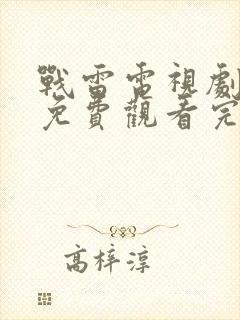 戰雷電視劇
免費觀看完
高梓淳